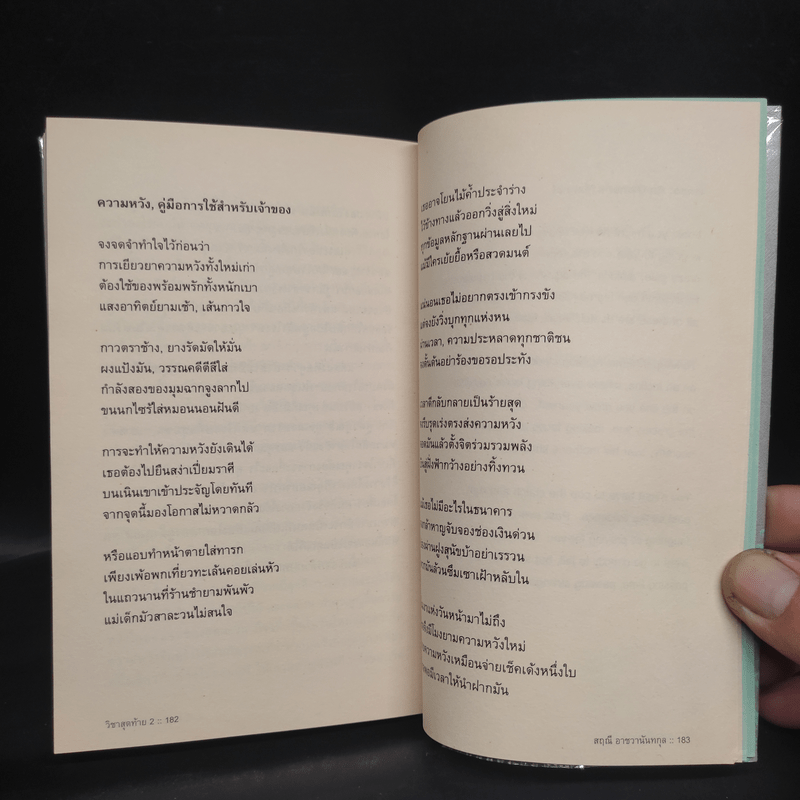 ความหวัง, คู่มือการใช้สำหรับเจ้าของ
จงจดจำทำใจไว้ก่อนว่า
การเยียวยาความหวังทั้งใหม่เก่า
ต้องใช้ของพร้อมพรักทั้งหนักเบา
แสงอาทิตย์ยามเช้า, เส้นกาวใจ
กาวตราช้าง, ยางรัดมัดให้มั่น
ผงแป้งมัน, วรรณคดีตีสีใส่
กำลังสองของมุมฉากจูงลากไป
ขนนกไซร้ใส่หมอนนอนฝันดี
การจะทำให้ความหวังยังเดินได้
เธอต้องไปยืนสง่าเปี่ยมราศี
บนเนินเขาเข้าประจัญโดยทันที
จากจุดนี้มองโอกาสไม่หวาดกลัว
หรือแอบทำหน้าตายใส่ทารก
เพียงเพ้อพกเที่ยวทะเล้นคอยเล่นหัว
ในแถวนานที่ร้านชำยามพันพัว
แม่เด็กมัวสาละวนไม่สนใจ
วิชาสุดท้าย 2 :: 182
เธออาจโยนไม้ค้ำประจำร่าง
ไว้ข้างทางแล้วออกวิ่งสู่สิ่งใหม่
ทุกข้อมูลหลักฐานผ่านเลยไป
ไม่มีใครเย้ยยื้อหรือสวดมนต์
แน่นอนเธอไม่อยากตรงเข้ากรงขัง
ยังวิ่งบุกทุกแห่งหน
ผ่านเวลา, ความประหลาดทุกชาติชน
ดั้นด้นอย่าร้องขอรอประทัง
เวลาดีกลับกลายเป็นร้ายสุด
รีบรุดเร่งตรงส่งความหวัง
มันแล้วตั้งจิตร่วมรวมพลัง
สู่ฝั่งฟ้ากว้างอย่างทิ้งทวน
เธอไม่มีอะไรในธนาคาร
กล้าหาญจับจองช่องเงินด่วน
ผ่านฝูงสุนัขบ้าอย่าเรรวน
มันล้วนซึมเซาเฝ้าหลับใน
แห่งวันหน้ามาไม่ถึง
มีโมงยามความหวังใหม่
ความหวังเหมือนจ่ายเช็คเด้งหนึ่งใบ
มีเวลาให้นำฝากมัน
สฤณี อาชวานันทกุล :: 183